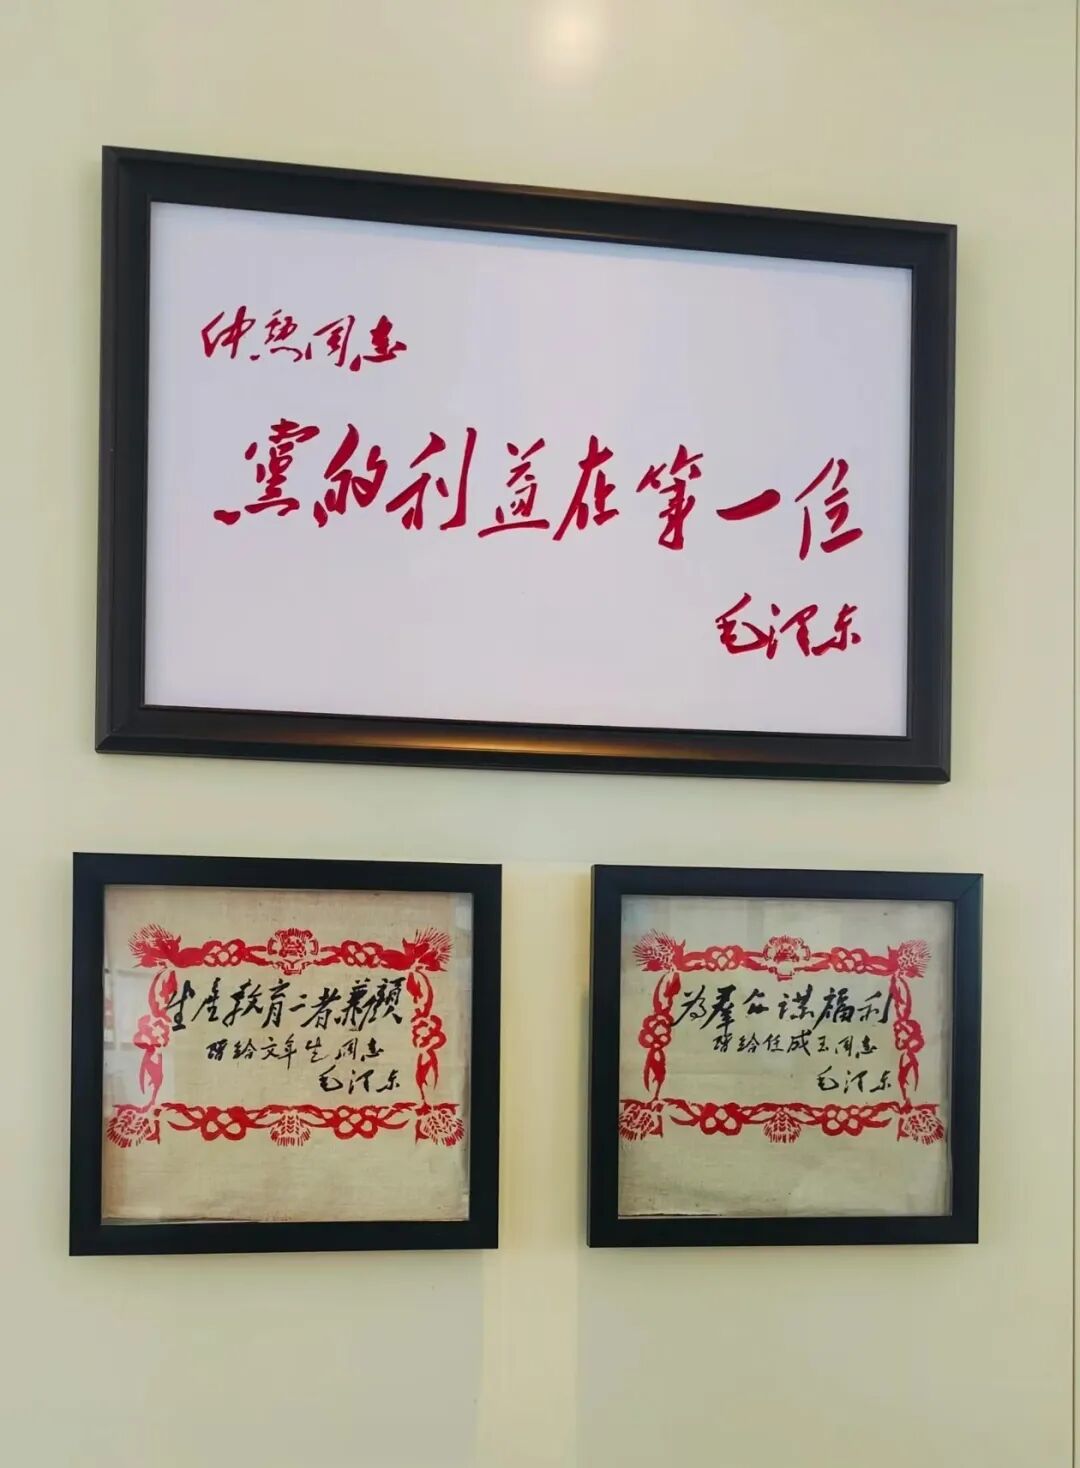 仲勲同志
黨的利益在第一位
毛泽东
生産教育二者兼顧
贈给文年生同志
毛泽东
为羣众谋福利
贈给任成玉同志
毛泽东